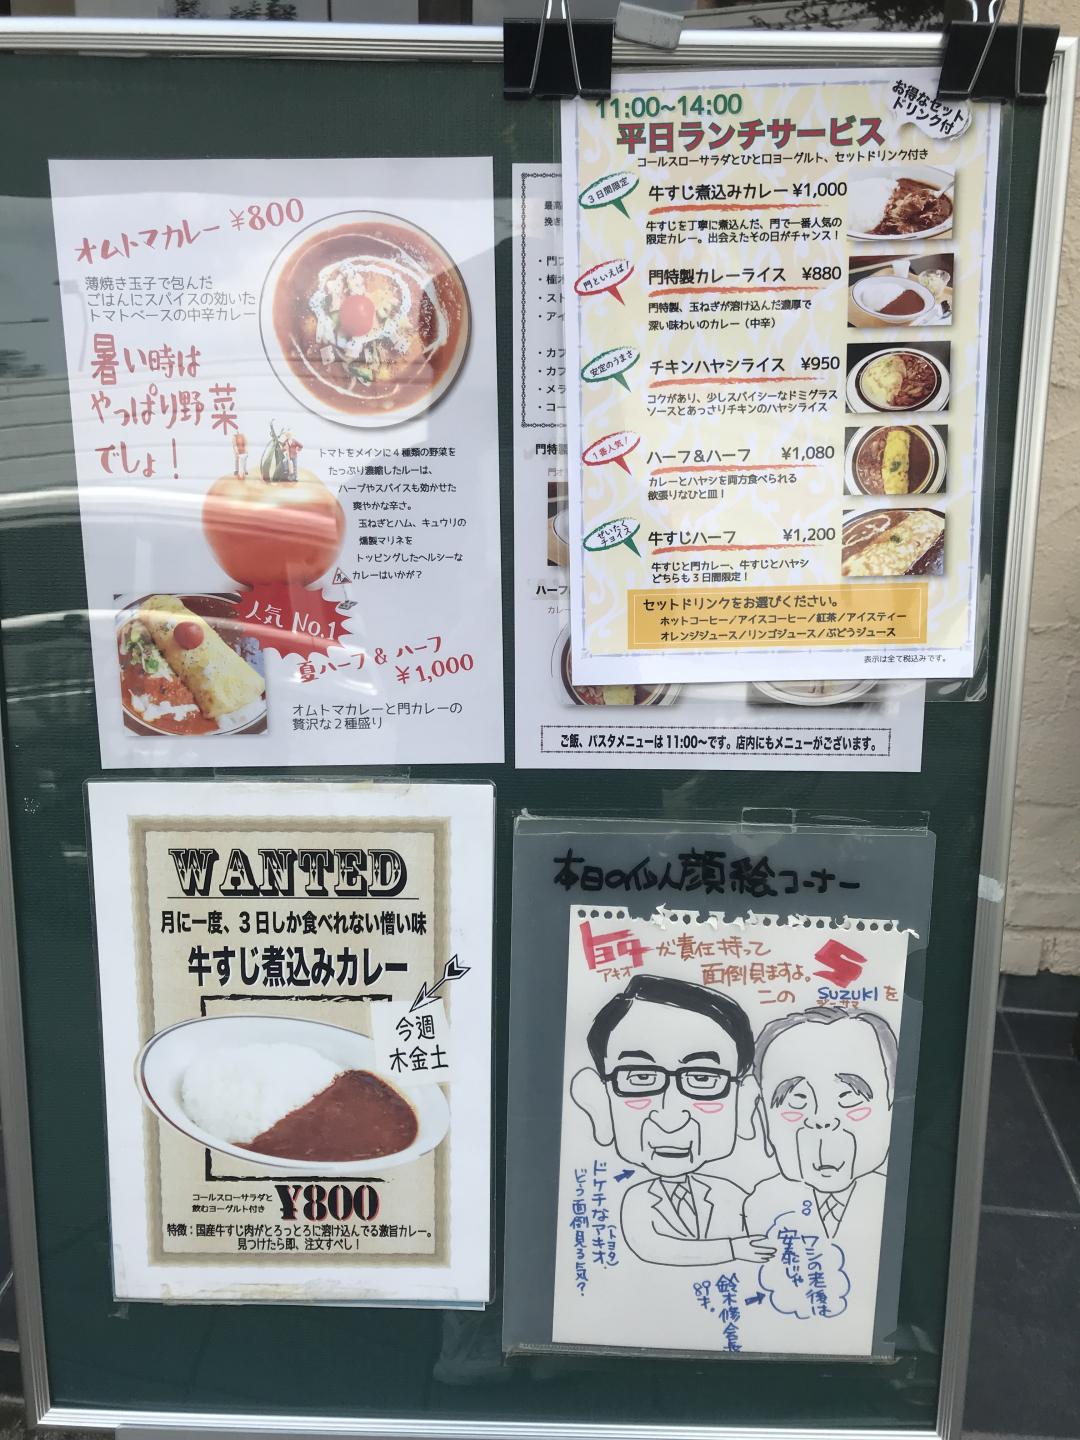 オムトマカレー ¥800
薄焼き玉子で包んだ
ごはんにスパイスの効いた
トマトベースの中辛カレー
暑い時は
やっぱり野菜
でしょ！
トマトをメインに４種類の野菜を
たっぷり濃縮したルーは、
ハーブやスパイスも効かせた
爽やかな辛さ。
玉ねぎとハム、キュウリの
燻製マリネを
トッピングしたヘルシーな
カレーはいかが？
人気 No.1
夏ハーフ & ハーフ
¥1,000
オムトマカレーと門カレーの
贅沢な２種盛り
お得なセット
ドリンク付
11:00~14:00
平日ランチサービス
コールスローサラダとひと口ヨーグルト、セットドリンク付き
３日間限定
牛すじ煮込みカレー ¥1,000
牛すじを丁寧に煮込んだ、門で一番人気の
限定カレー。出会えたその日がチャンス！
門といえば！
門特製カレーライス ¥880
門特製、玉ねぎが溶け込んだ濃厚で
深い味わいのカレー（中辛）
安定のうまさ
チキンハヤシライス ¥950
コクがあり、少しスパイシーなドミグラス
ソースとあっさりチキンのハヤシライス
１番人気！
ハーフ&ハーフ ¥1,080
カレーとハヤシを両方食べられる
欲張りなひと皿！
ぜいたく
チョイス
牛すじハーフ ¥1,200
牛すじと門カレー、牛すじとハヤシ
どちらも３日間限定！
セットドリンクをお選びください。
ホットコーヒー／アイスコーヒー／紅茶／アイスティー
オレンジジュース／リンゴジュース／ぶどうジュース
表示は全て税込みです。
最高
挽き
・門
・ス
・アイ
・カフ
・カフ
・メラ
・コー
門特製
ハーフ
カレー
ご飯、パスタメニューは11:00～です。店内にもメニューがございます。
WANTED
月に一度、３日しか食べれない憎い味
牛すじ煮込みカレー
今週
木金土
コールスローサラダと
飲むヨーグルト付き
¥800
特徴：国産牛すじ肉がとろっとろに溶け込んでる激旨カレー。
見つけたら即、注文すべし！
本日の仏人顔絵コーナー
トヨタが責任持って
アキオ
面倒見ますよ。
この SUZUKIを
ジーサマ
S
ドケチなアキオ(トヨタ)、
どう面倒見る気？
ワシの老後は
安泰じゃ
鈴木修会長
89才。